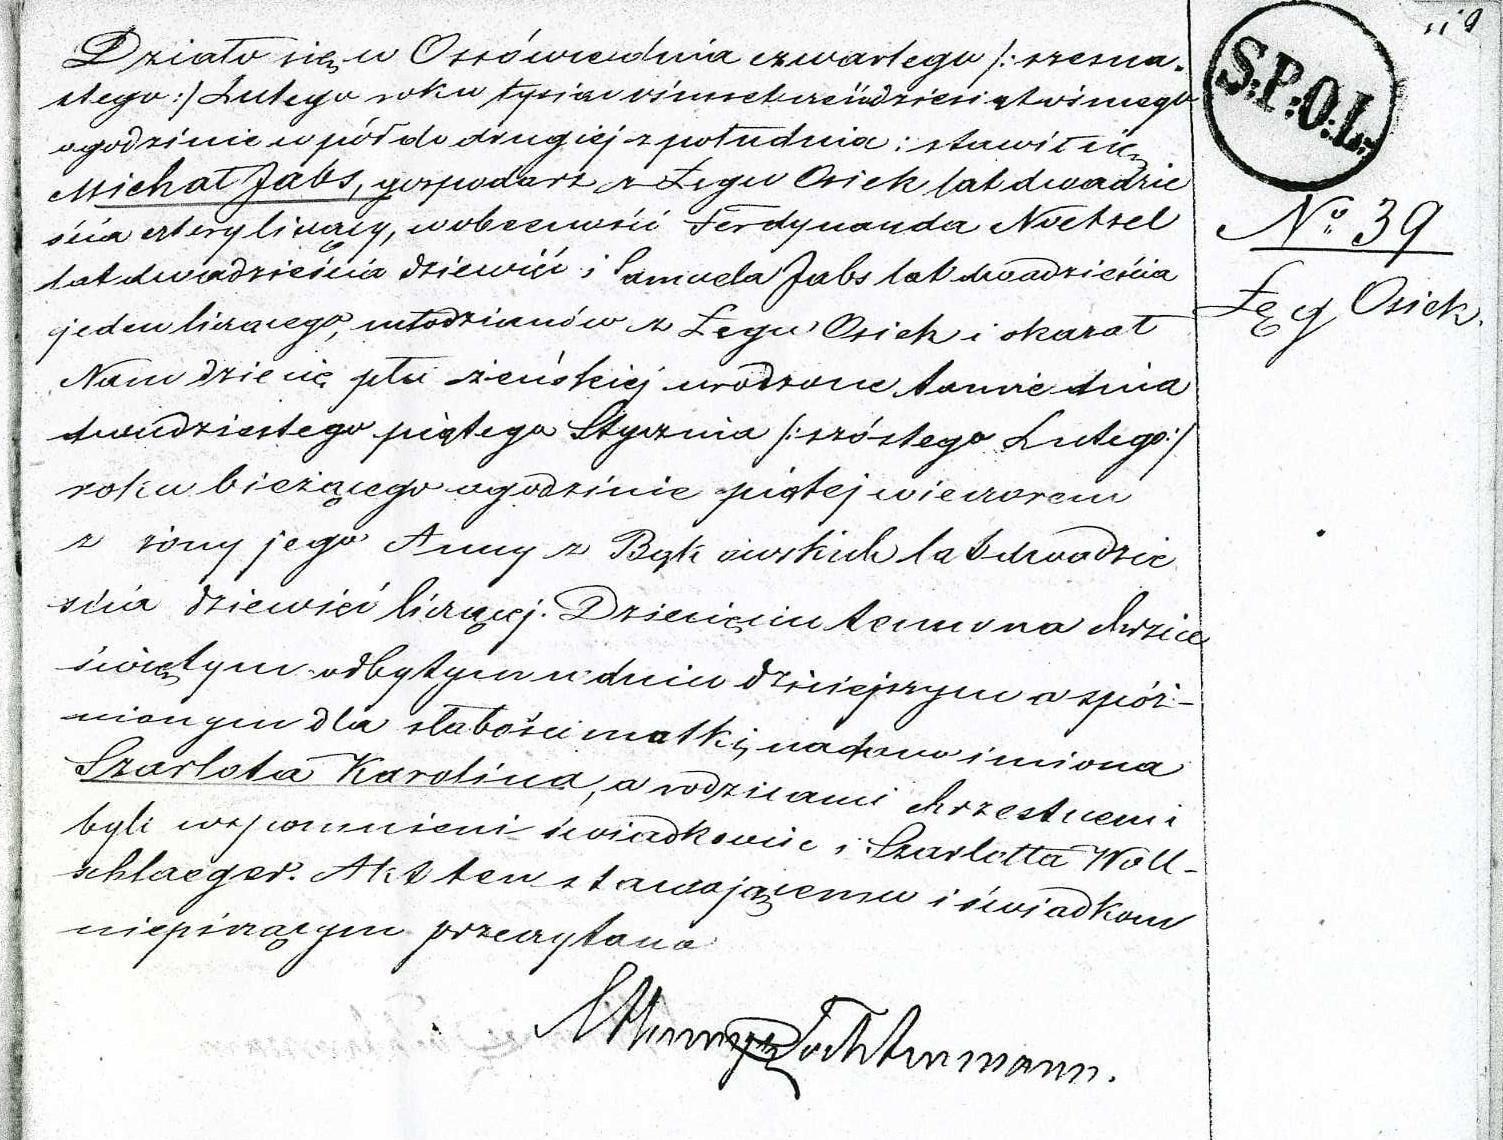 119
S:P:O:L:
No 39
Łęg Osiek.
Działo się w Ossówie dnia czwartego /: szesna-
stego :/ Lutego roku tysiąc ośmset trzydziesiąt ośmego
o godzinie w pół do drugiej z południa: stawił się
Michał Jabs, gospodarz z Łęgu Osiek lat dwadzie
ścia cztery liczący, w obecności Ferdynanda Noetzel
lat dwadzieścia dziewięć i Samuela Jabs lat dwadzieścia
jeden liczącego, młodzianów z Łęgu Osiek i okazał
Nam dziecię płci żeńskiej urodzone tamże dnia
dwudziestego piątego Stycznia /: szóstego Lutego :/
roku bieżącego o godzinie piątej wieczorem
z żony jego Anny z Bykowskich lat dwadzie
ścia dziewięć liczącej. Dziecięciu temu na chrzcie
świętym odbytym w dniu dzisiejszym a spóź-
nionym dla słabości matki, nadano imiona
Szarlota Karolina, a rodzicami chrzestnemi
byli wspomnieni świadkowie i Szarlotta Woll-
schlaeger. Akt ten stawającemu i świadkom
niepiszącym przeczytano